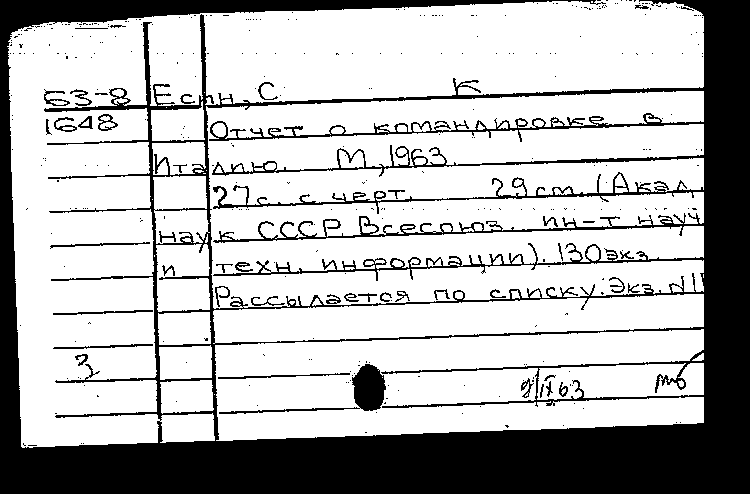 63-8 Есин, С. К
1648 Отчет о командировке в
Италию. М, 1963.
27с. с черт. 29 cm. (Акад.
наук СССР. Всесоюз. ин-т науч
и техн. информации). 130 экз.
Рассылается по списку. Экз. N 11
3
9/IX 63